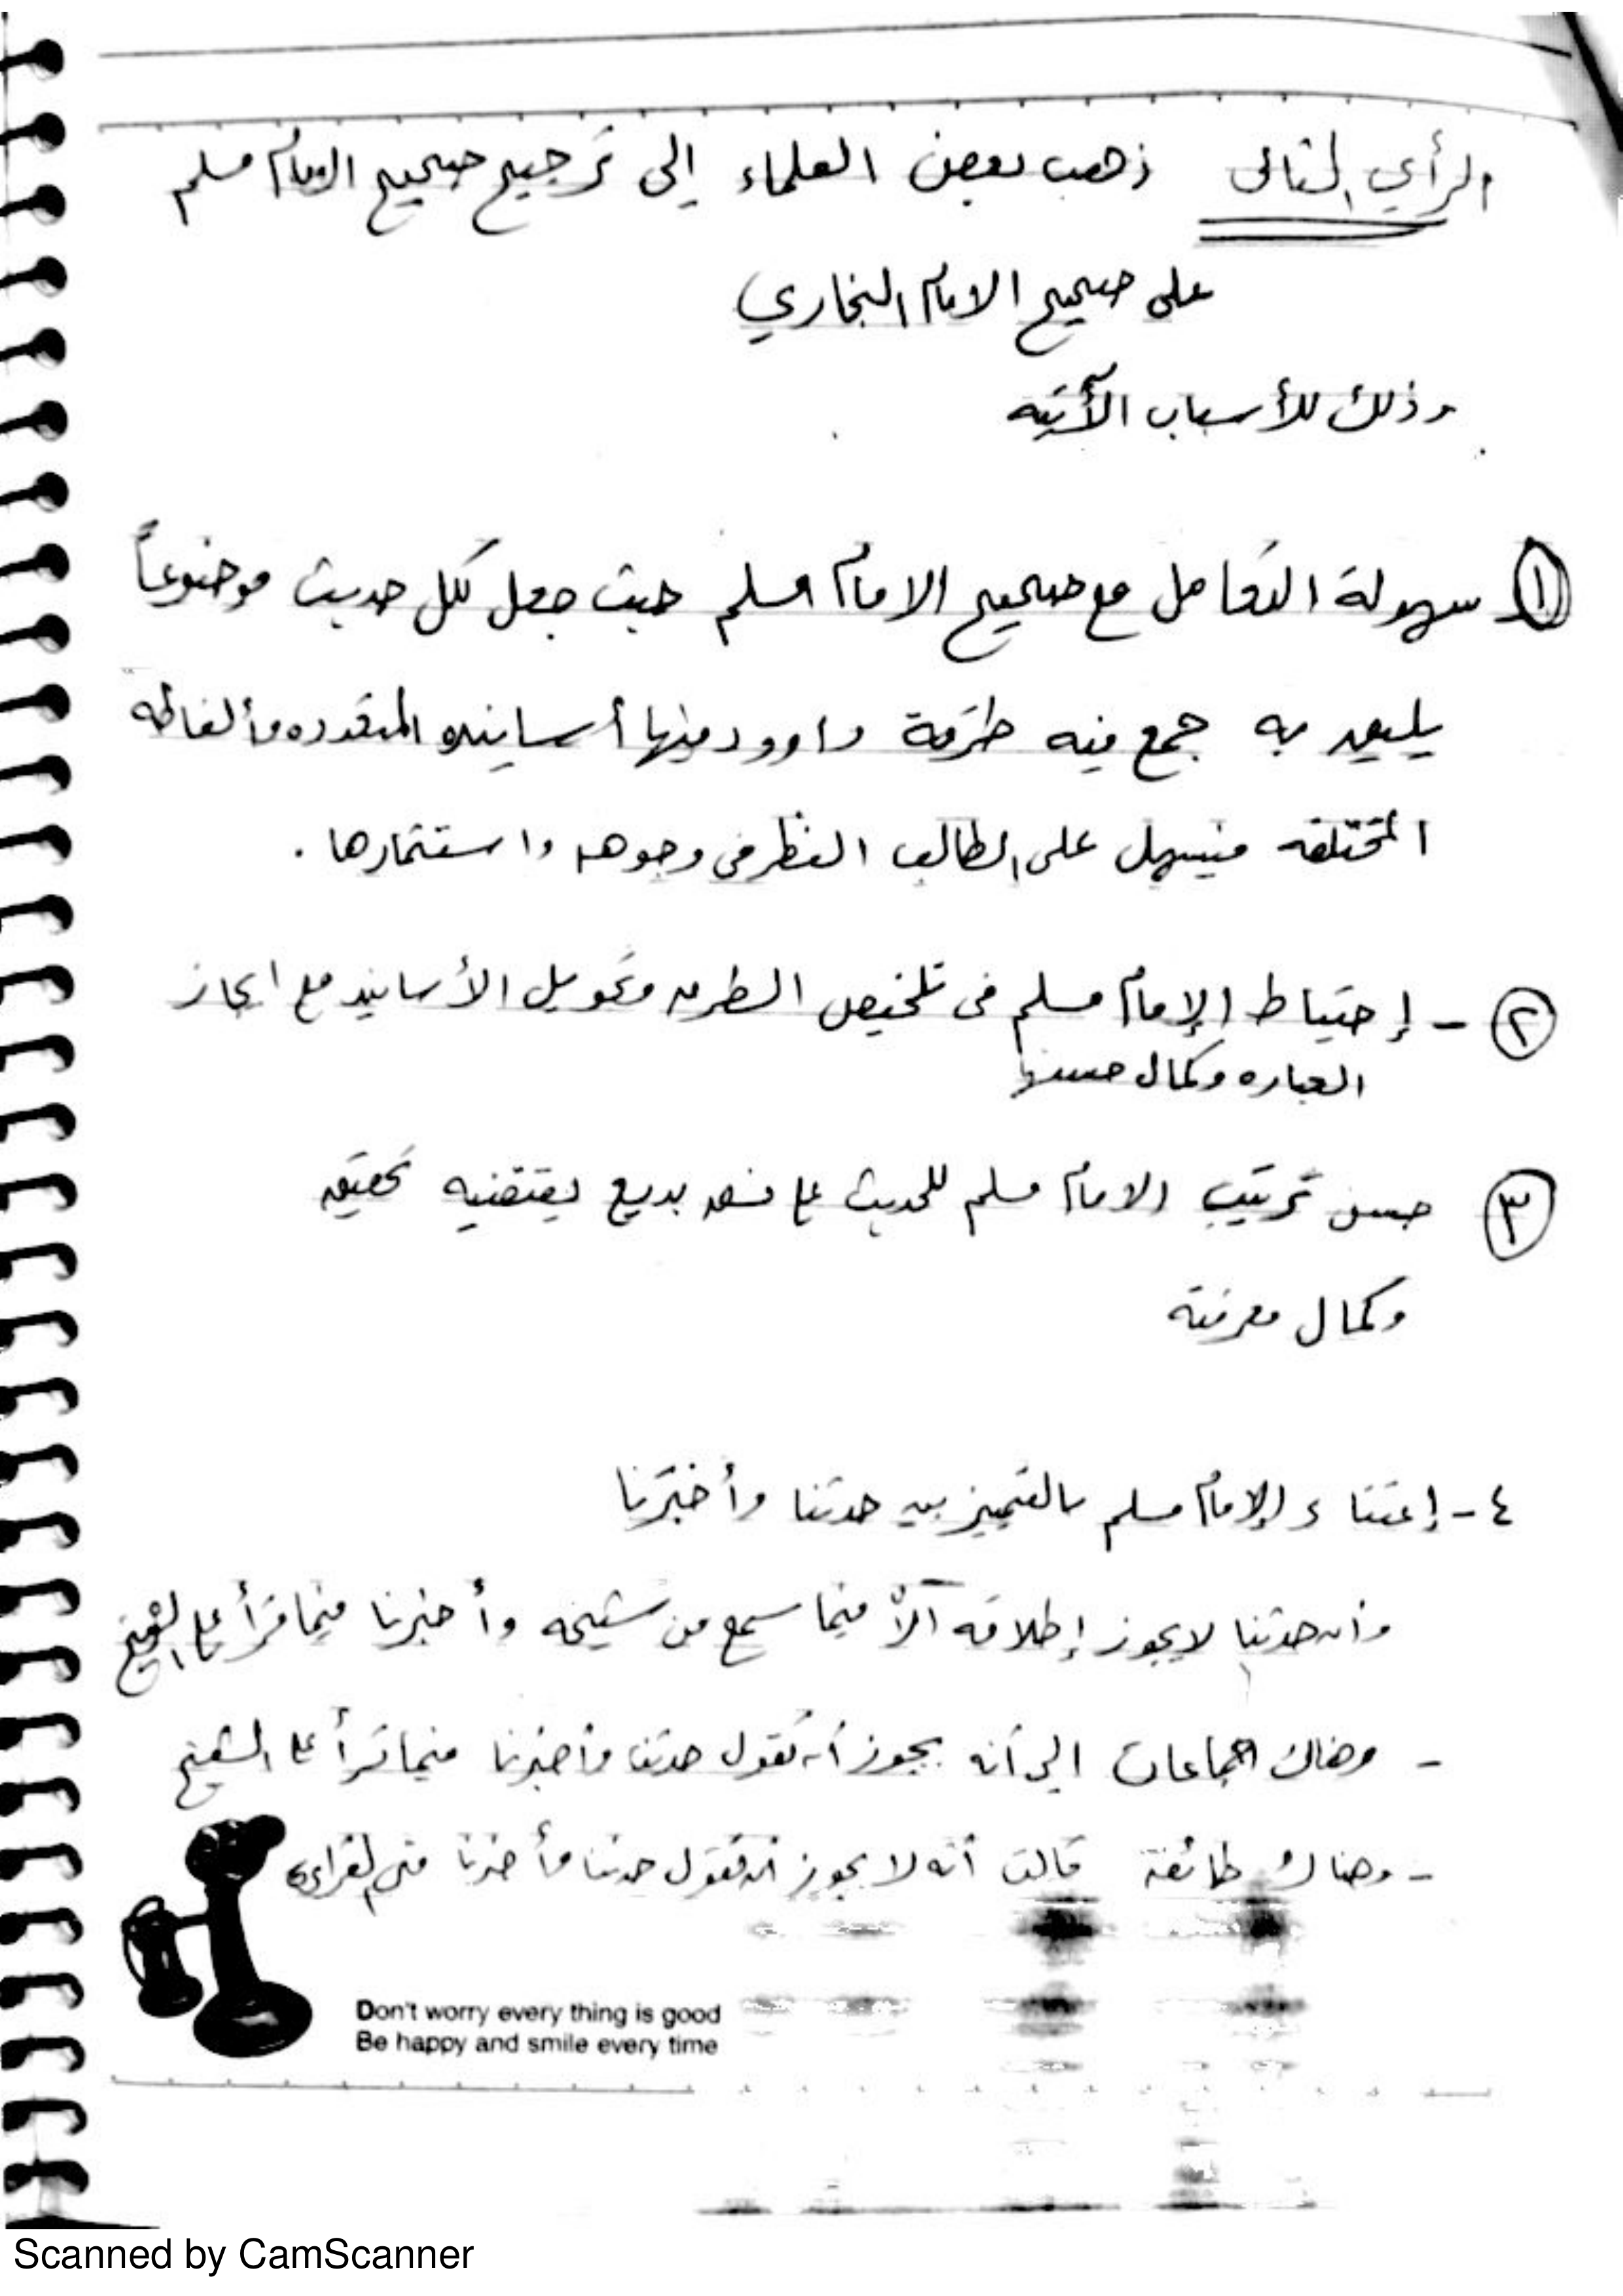 الرأي الثانى ذهب بعض العلماء إلى ترجيح صحيح الامام مسلم
على صحيح الامام البخاري
وذلك للأسباب الآتيه
١- سهولة التعامل مع صحيح الامام مسلم حيث جعل لكل حديث موضوعاً
يليق به جمع فيه طرقة واورد فيها أسانيده المتعدده وألفاظه
المختلفه فيسهل على الطالب النظر فى وجوهه واستثمارها .
٢- إحتياط الإمام مسلم فى تلخيص الطرق وتحويل الأسانيد مع ايجاز
العباره وكمال حسنها
٣ حسن ترتيب الامام مسلم للحديث على نسق بديع يقتضيه تحقيقه
وكمال معرفتة
٤- إعتناء الإمام مسلم بالتمييز بين حدثنا وأخبرنا
وأن حدثنا لا يجوز إطلاقه آلأ فيما سمع من شيخه وأخبرنا فيما قرأ على الشيخ
- وهناك جماعات الى أنه يجوز أن تقول حدثنا وأخبرنا فيما قرأ على الشيخ
- وهناك طائفة قالت أنه لا يجوز أن تقول حدثنا وأخبرنا فى القراءه
Don't worry every thing is good
Be happy and smile every time
Scanned by CamScanner